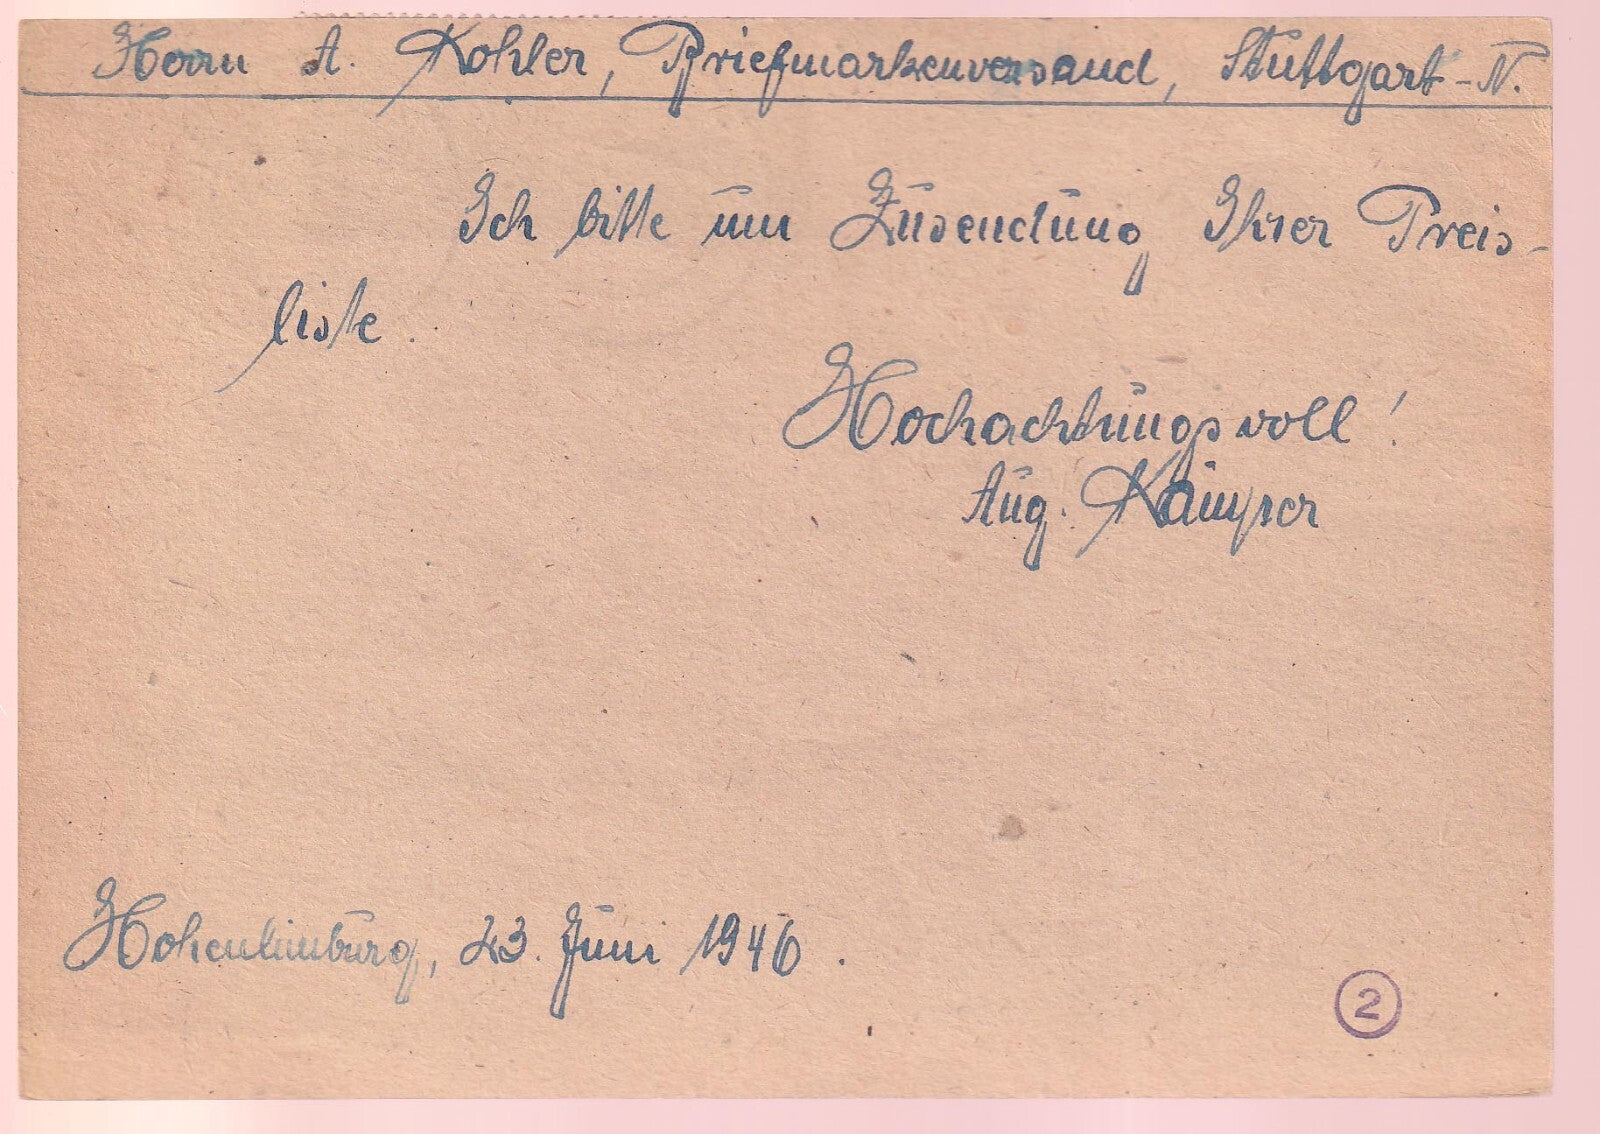 Herrn A. Kohler, Briefmarkenversand, Stuttgart-N.
Ich bitte um Zusendung Ihrer Preis-
liste.
Hochachtungsvoll!
Aug. Kämper
Hohenlimburg, 23. Juni 1946.
2